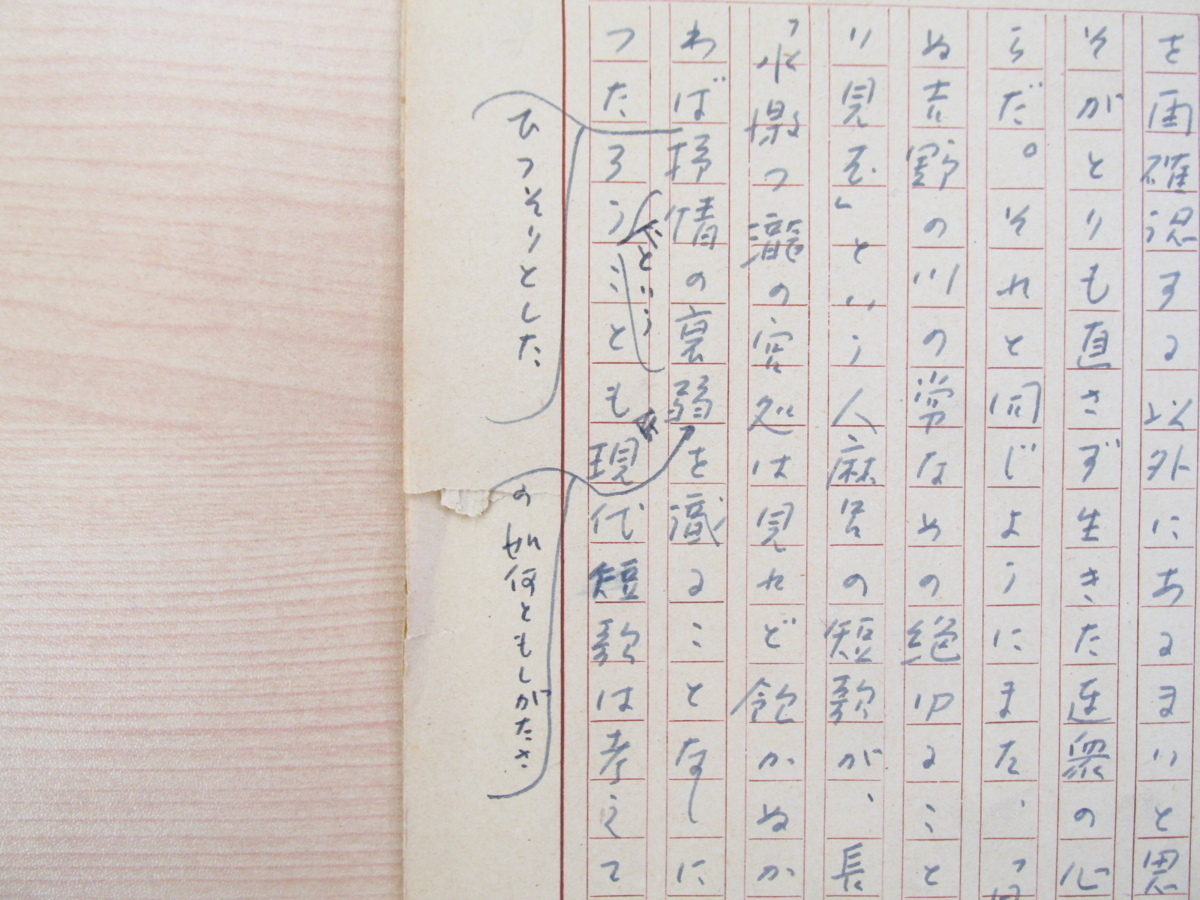 を再確認する以外にあるまいと思
そがとりも直さず生きた連衆の心
らだ。それと同じようにまた、「
ぬ吉野の川の常なめの絶ゆること
り見む」という人麻呂の短歌が、長
「水激つ瀧の宮処は見れど飽かぬか
わば抒情の裏弱を識ることなしに
の如何ともしがたさ
ひつそりとした
つたろうことも現代短歌は考えて
だという